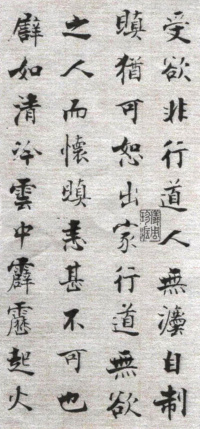 受欲非行道人無灋自制
瞋猶可恕出家行道無欲
之人而懷瞋恚甚不可也
譬如清冷雲中霹靂起火